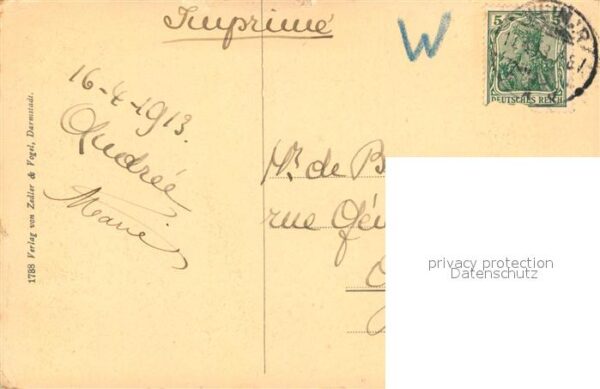 Imprimé
W
5
DEUTSCHES REICH
16-4-1913.
Andrée
Marie
Mr. de
rue
1788 Verlag von Zedler & Vogel, Darmstadt.
privacy protection
Datenschutz